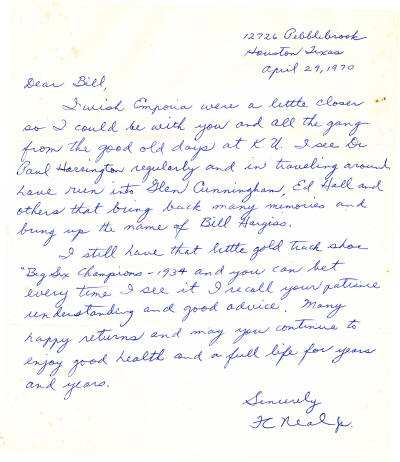 12726 Pebblebrook
Houston Texas
April 29, 1970
Dear Bill,
I wish Emporia were a little closer
so I could be with you and all the gang
from the good old days at K U. I see Dr
Paul Harrington regularly and in traveling around
have run into Glen Cunningham, Ed Hall and
others that bring back many memories and
bring up the name of Bill Hargiss.
I still have that little gold track shoe
"Big Six Champions - 1934 and you can bet
every time I see it I recall your patience
understanding and good advice. Many
happy returns and may you continue to
enjoy good health and a full life for years
and years.
Sincerely
FC Neal Jr.